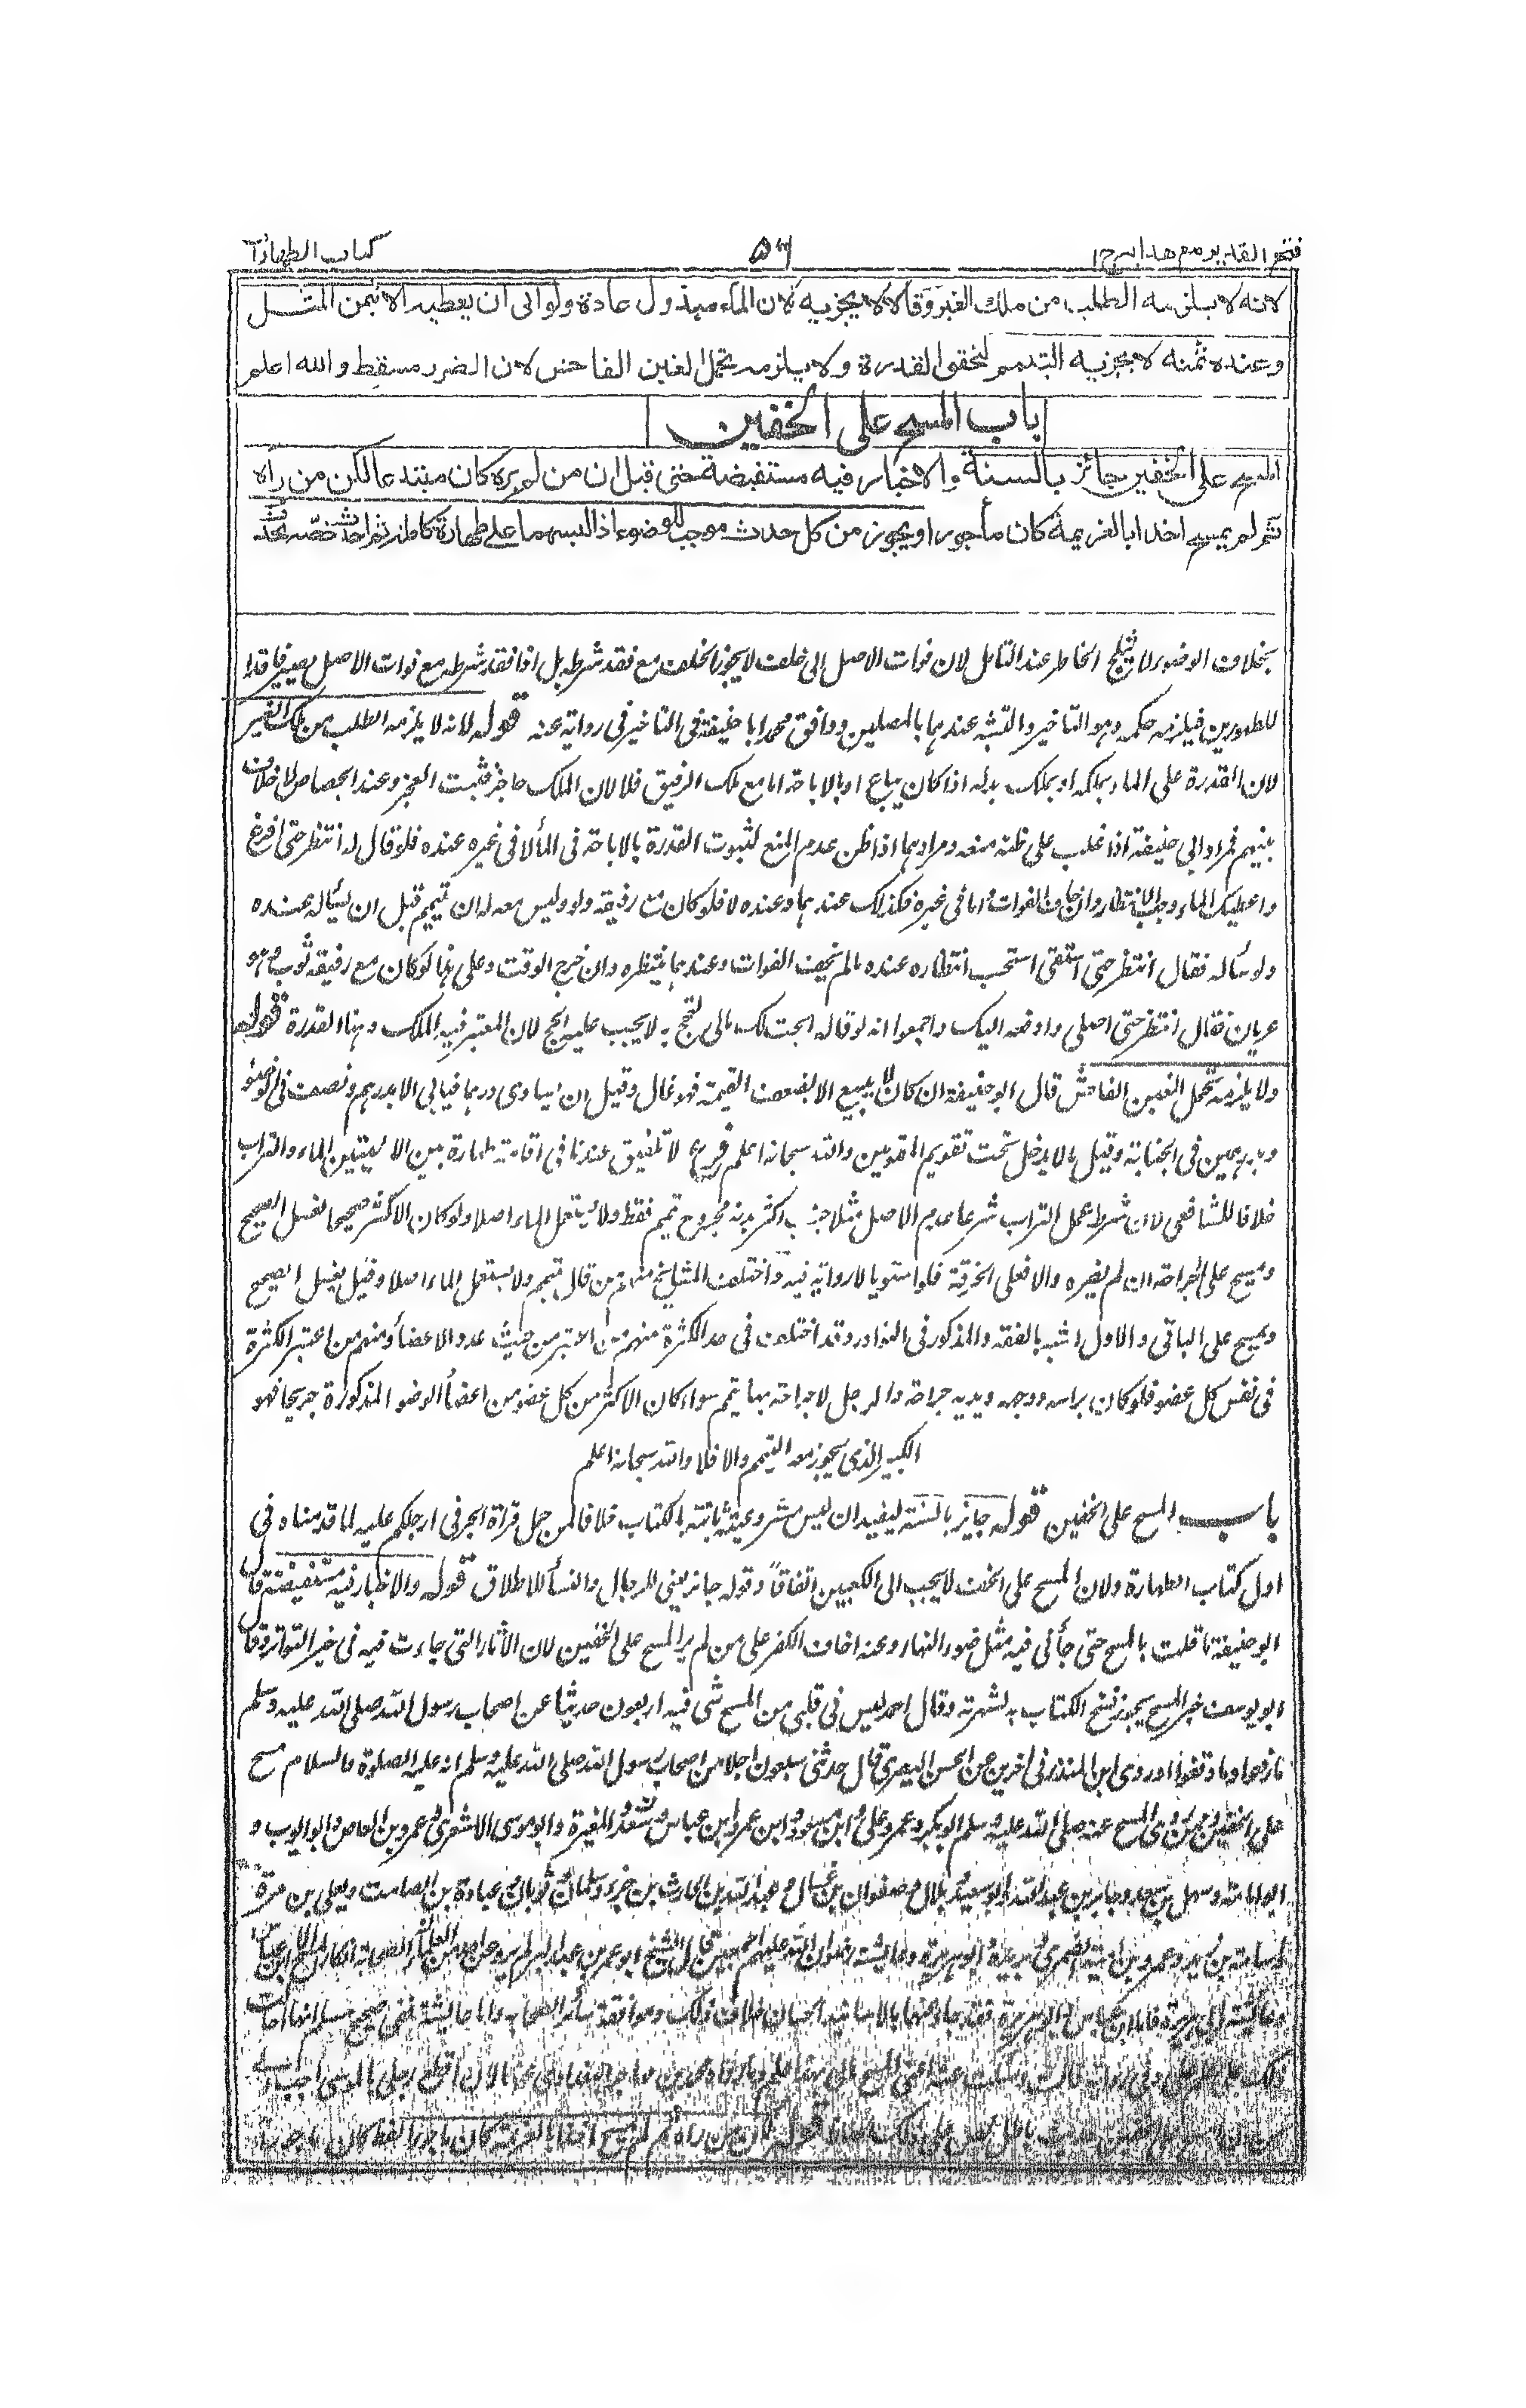 فتح القدير مع هدايه ج ١
٥٦
كتاب الطهارات
لانه لا يلزمه الطلب من ملك الغير وقالا لا يجزيه لان الماء مبذول عادة ولو ابى ان يعطيه الا بثمن المثل
وعنده ثمنه لا يجزيه التيمم لتحقق القدرة ولا يلزمه تحمل الغبن الفاحش لان الضرر مسقط والله اعلم
باب المسح على الخفين
المسح على الخفين جائز بالسنة والاخبار فيه مستفيضة حتى قيل ان من لم يره كان مبتدعا لكن من رأه
ثم لم يمسح اخذا بالعزيمة كان مأجورا ويجوز من كل حدث موجب للوضوء اذا لبسهما على طهارة كاملة ثم احدث خصه بحدث
بخلاف الوضوء لا يثلج الخاطر عند التامل لان فوات الاصل الى خلف لا يجوز الخلف مع فقد شرطه بل اذا فقد شرطه مع فوات الاصل يصير فاقدا
للطهورين فيلزمه حكمه وهو التاخير والتشبه عندهما بالمصلين ووافق محمد ابا حنيفة في التاخير في رواية عنه قوله لانه لا يلزمه الطلب من ملك الغير
لان القدرة على الماء بملكه او بملك بدله اذا كان يباع او بالاباحة اما مع ملك الرفيق فلا لان الملك حاجز فثبت العجز وعند الجصاص لا خلاف
بينهم فمراد ابي حنيفة اذا غلب على ظنه منعه ومرادهما اذا ظن عدم المنع لثبوت القدرة بالاباحة في الماء لا في غيره عنده فلو قال له انتظر حتى افرغ
واعطيك الماء وجب الانتظار وان خاف الفوات اما في غيره فكذلك عندهما وعنده لا فلو كان مع رفيقه دلو وليس معه له ان يتيمم قبل ان يسأله عنده
ولو سأله فقال انتظر حتى استقى استحب انتظاره عنده ما لم يخف الفوات وعندهما ينتظره وان خرج الوقت وعلى هذا لو كان مع رفيقه ثوب وهو
عريان فقال انتظر حتى اصلي وادفعه اليك واجمعوا انه لو قال ابحت لك مالي لتحج به لا يجب عليه الحج لان المعتبر فيه الملك وهنا القدرة قوله
ولا يلزمه تحمل الغبن الفاحش قال ابو حنيفة ان كان لا يبيع الا بضعف القيمة فهو غال وقيل ان يساوي درهما فيابي الا بدرهم ونصف في الوضوء
وبدرهمين في الجنابة وقيل ما لا يدخل تحت تقويم المقومين والله سبحانه اعلم فرع لا تلفيق عندنا في اقامة طهارة بين الاليتين الماء والتراب
خلافا للشافعي لان شرط عمل التراب شرعا عدم الاصل مثلا جنب اكثر بدنه مجروح تيمم فقط ولا يستعمل الماء اصلا ولو كان الاكثر صحيحا غسل الصحيح
ومسح على الجراحة ان لم يضره والا فعلى الخرقة فلو استويا لا رواية فيه واختلف المشايخ منهم من قال يتيمم ولا يستعمل الماء اصلا وقيل يغسل الصحيح
ويمسح على الباقي والاول اشبه بالفقه والمذكور في النوادر وقد اختلف في حد الكثرة منهم من اعتبر من حيث عدد الاعضاء ومنهم من اعتبر الكثرة
في نفس كل عضو فلو كان براسه ووجهه ويديه جراحة والرجل لا جراحة بها يتيمم سواء كان الاكثر من كل عضو من اعضاء الوضوء المذكورة جريحا فهو
الكبير الذي يجوز معه التيمم والا فلا والله سبحانه اعلم
باب المسح على الخفين قوله جايز بالسنة ليفيد ان ليس مشروعيته ثابتة بالكتاب خلافا لمن حمل قرأة الجر في ارجلكم عليه لما قدمناه في
اول كتاب الطهارة ولان المسح على الخف لا يجب الى الكعبين اتفاقا وقوله جائز يعني للرجال والنسأ للاطلاق قوله والاخبار فيه مستفيضة قال
ابو حنيفة ما قلت بالمسح حتى جأني فيه مثل ضوء النهار وعنه اخاف الكفر على من لم ير المسح على الخفين لان الآثار التي جاءت فيه في خبر التواتر وقال
ابو يوسف خبر المسح يجوز نسخ الكتاب به لشهرته وقال احمد ليس في قلبي من المسح شئ فيه اربعون حديثا عن اصحاب رسول الله صلى الله عليه وسلم
ما رفعوا وما وقفوا وروى ابن المنذر في اخرين عن الحسن البصري قال حدثني سبعون رجلا من اصحاب رسول الله صلى الله عليه وسلم انه عليه الصلوة والسلام مسح
على الخفين وممن روى المسح عنه صلى الله عليه وسلم ابو بكر وعمر وعلي وابن مسعود وابن عمر وابن عباس وسعد والمغيرة وابو موسى الاشعري وعمرو بن العاص وابو ايوب و
ابو امامة وسهل بن سعد وجابر بن عبد الله وابو سعيد وبلال وصفوان بن عسال وعبد الله بن الحارث بن جزء وسلمان وثوبان وعبادة بن الصامت ويعلى بن مرة
واسامة بن زيد وعمرو بن امية الضمري وبريدة وابو هريرة وعايشة رضوان الله عليهم اجمعين قال الشيخ ابو عمر بن عبد البر لم يرو عن احد من الصحابة انكار المسح الا ابن عباس
وعائشة وابي هريرة فاما ابن عباس وابو هريرة فقد جاء عنهما بالاسانيد الحسان خلاف ذلك وموافقة سائر الصحابة واما عائشة ففي صحيح مسلم انها احالت
ذلك على علم علي
قوله لكن من رآه ثم لم يمسح اخذا بالعزيمة كان ماجورا